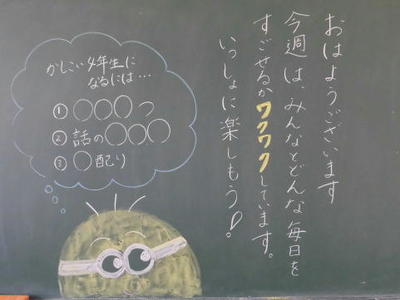 おはようございます
今週は、みんなとどんな毎日を
すごせるかワクワクしています。
いっしょに楽しもう!
かしこい4年生に
なるには…
① ○○○つ
② 話の○○○
③ ○配り